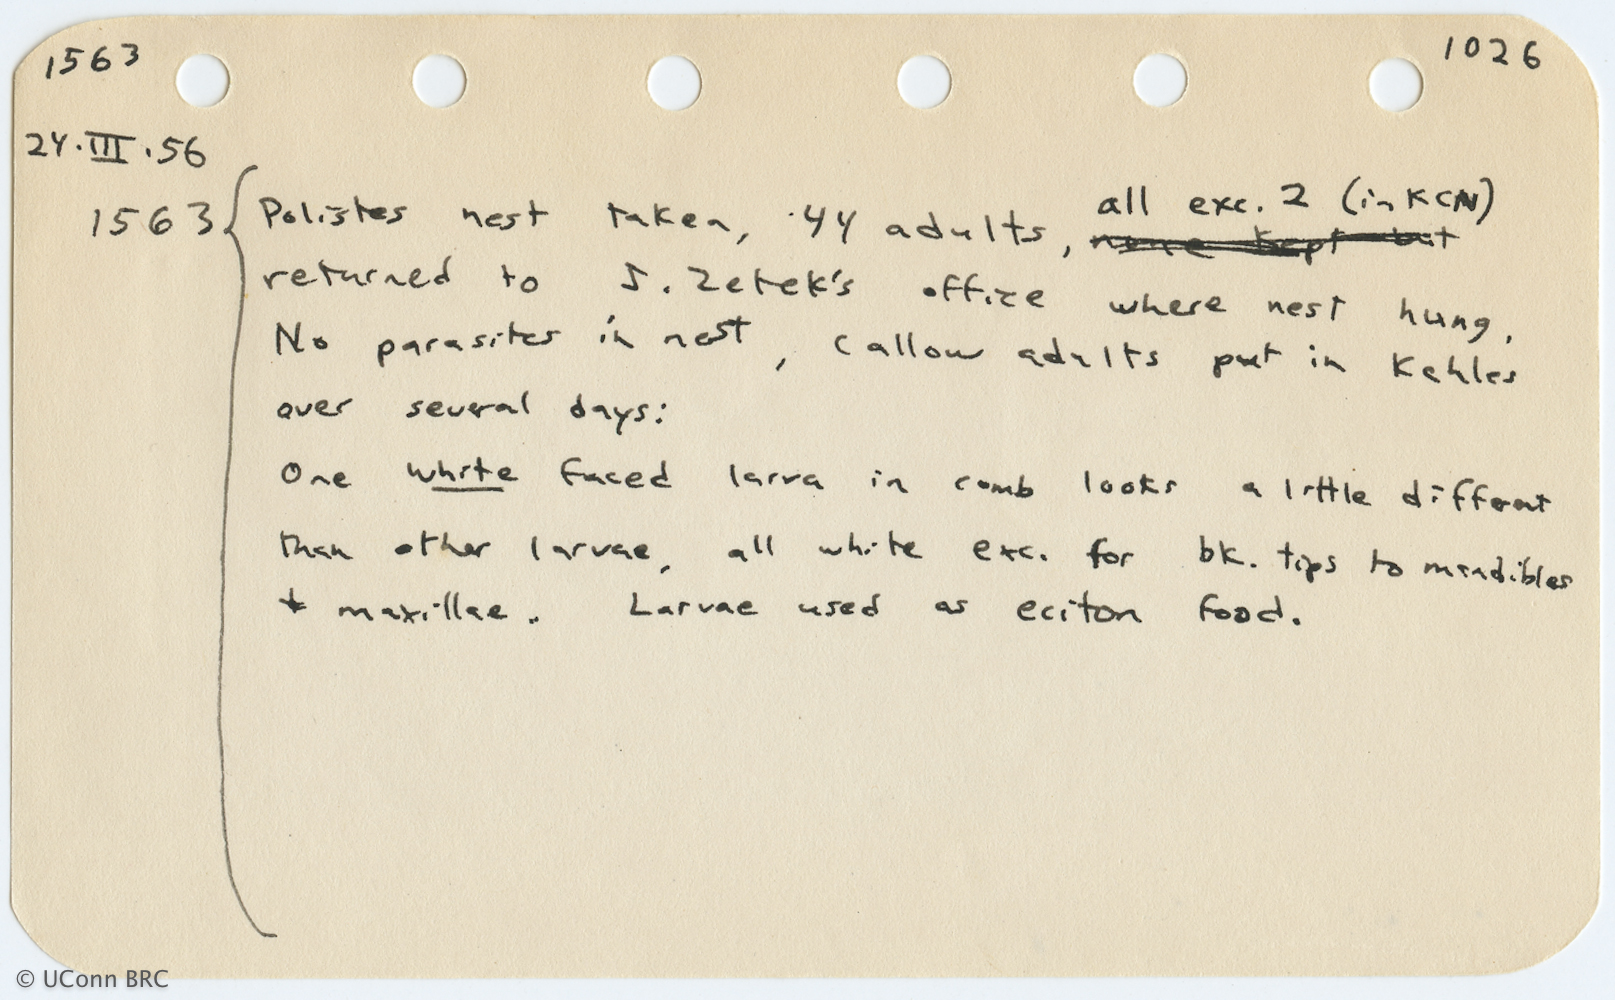 1563 1026
24.III.56
1563 Polistes nest taken, 44 adults, all exc. 2 (in KCN)
none kept but
returned to J. Zetek's office where nest hung.
No parasites in nest, callow adults put in Kahles
over several days:
One white faced larva in comb looks a little different
than other larvae, all white exc. for bk. tips to mandibles
+ maxillae. Larvae used as eciton food.
© UConn BRC